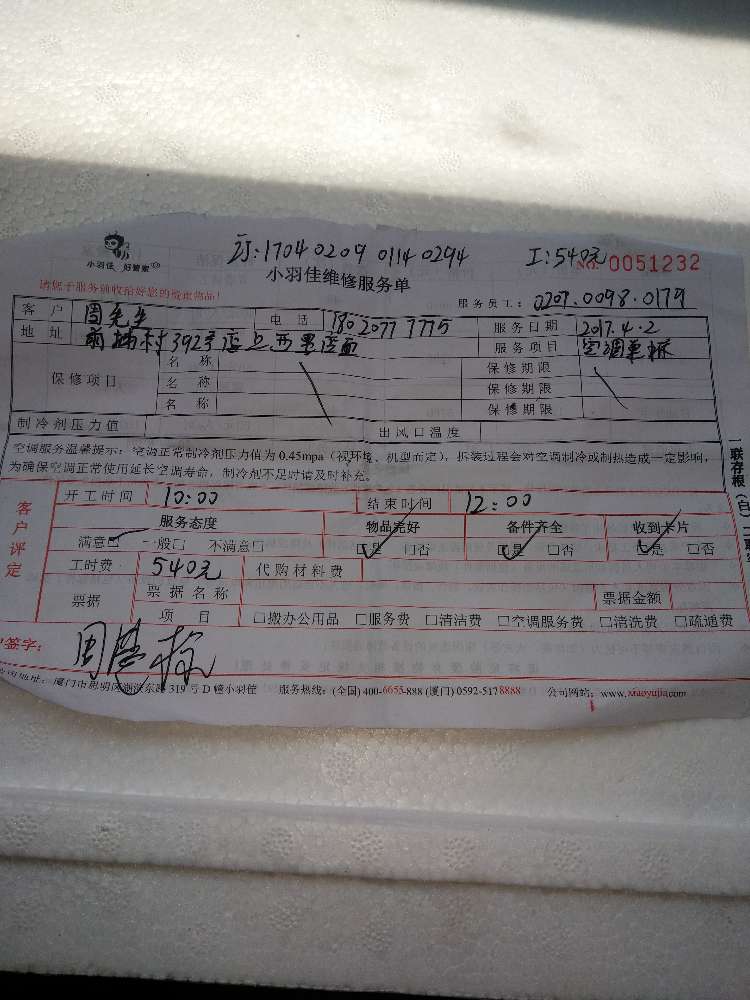 订:1704 0209 0114 0294 工:540元
小羽佳 好管家 小羽佳维修服务单 NO. 0051232
请您于服务前收拾好您的贵重物品! 服务员工: 0207.0098.0179
客 户 周先生 电 话 180 2077 7775 服务日期 2017.4.2
地 址 前埔村392号店 服务项目 空调
保修项目 名 称 保修期限
名 称 保修期限
名 称 保修期限
制冷剂压力值 出风口温度
空调服务温馨提示: 空调正常制冷剂压力值为 0.45mpa (视环境、机型而定), 拆装过程会对空调制冷或制热造成一定影响,
为确保空调正常使用延长空调寿命, 制冷剂不足时请及时补充。
一联存根(白)
客户评定
开工时间 10:00 结束时间 12:00
服务态度 物品完好 备件齐全 收到卡片
满意□ 一般□ 不满意□ □是 □否 □是 □否 □是 □否
工时费 540元 代购材料费
票据 票据名称 票据金额
项 目 □搬办公用品 □服务费 □清洁费 □空调服务费 □清洗费 □疏通费
签字:
地址: 厦门市思明区湖滨东路 319 号 D 幢小羽佳 服务热线: (全国) 400-6655-888 (厦门) 0592-5178888 公司网站: www.xiaoyujia.com